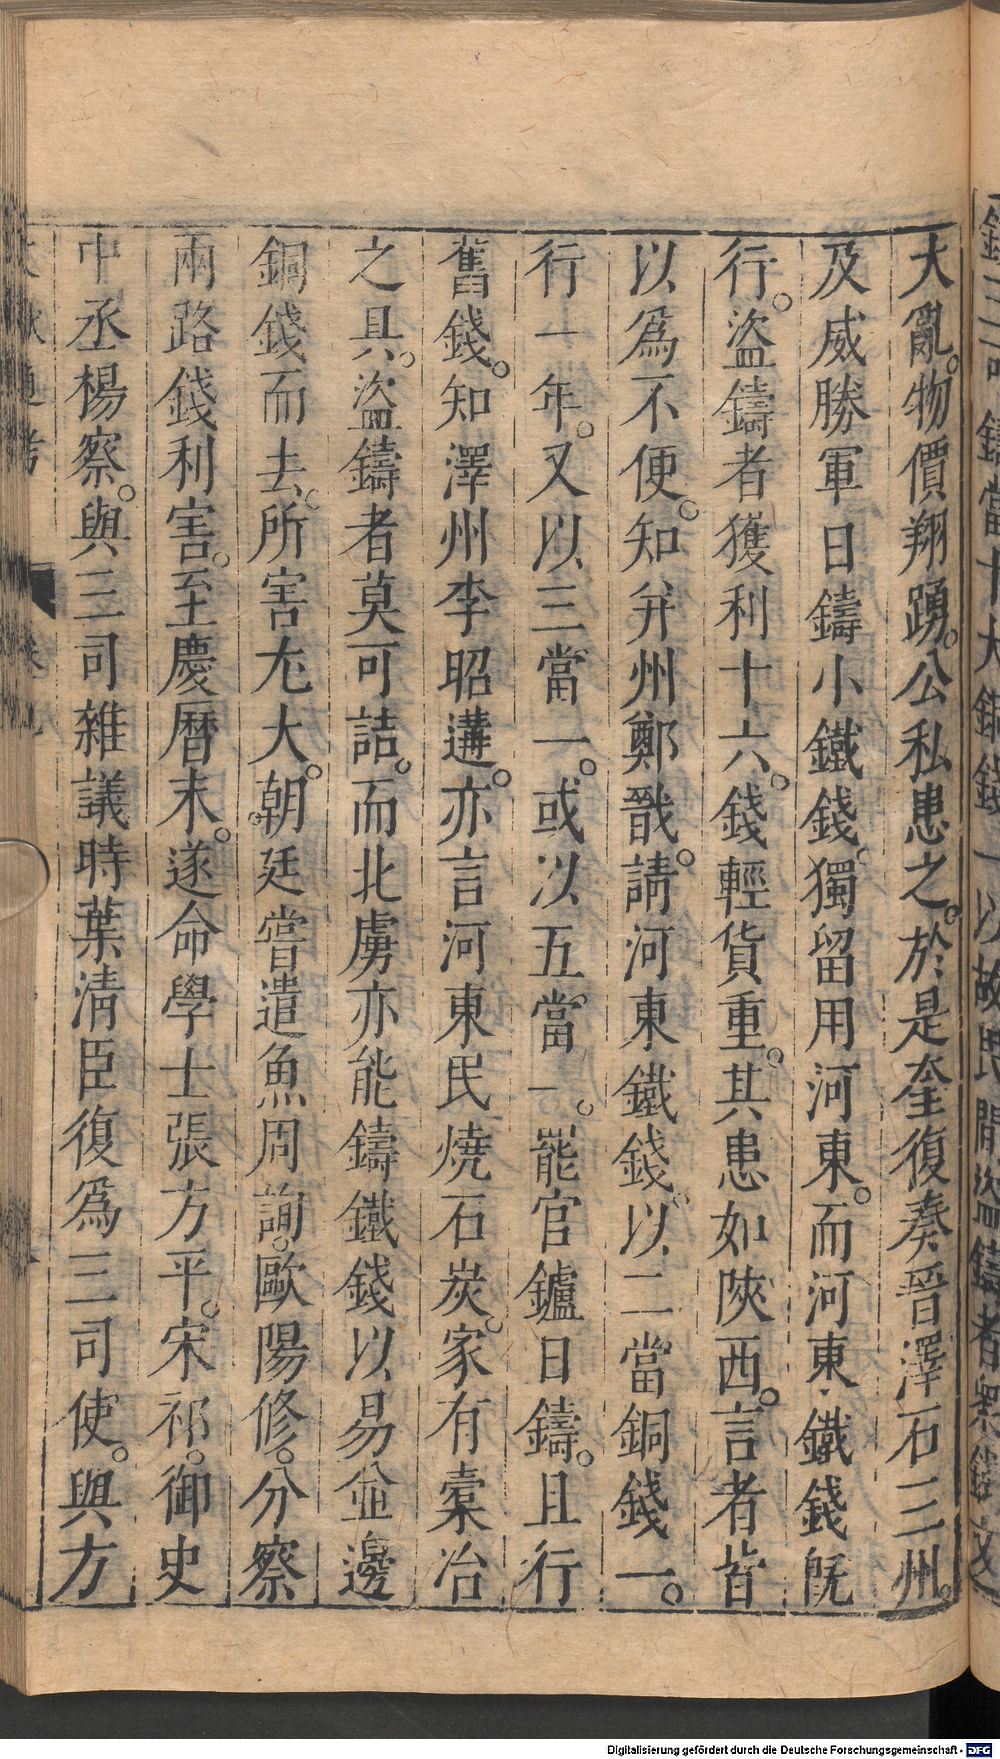 大亂。物價翔踴。公私患之。於是奎復奏晉澤石三州。
及威勝軍日鑄小鐵錢。獨留用河東。而河東鐵錢旣
行。盜鑄者獲利十六。錢輕貨重。其患如陝西。言者皆
以爲不便。知幷州鄭戩。請河東鐵錢。以二當銅錢一。
行一年。又以三當一。或以五當一。罷官鑪日鑄。且行
舊錢。知澤州李昭遘。亦言河東民燒石炭。家有橐冶
之具。盜鑄者莫可詰。而北虜亦能鑄鐵錢以易並邊
銅錢而去。所害尤大。朝廷嘗遣魚周詢。歐陽修。分察
兩路錢利害。至慶曆末。遂命學士張方平。宋祁。御史
中丞楊察。與三司雜議時葉清臣復爲三司使。與方
鑄當十大銅錢一以故民間盜鑄者衆錢文
Digitalisierung gefördert durch die Deutsche Forschungsgemeinschaft - DFG